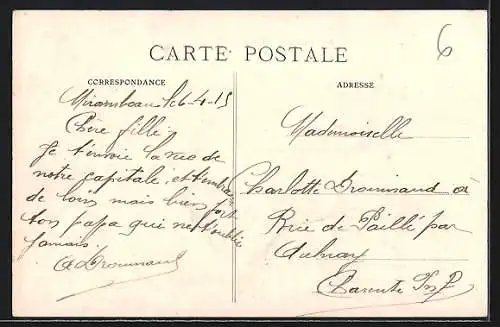 CARTE POSTALE
6
CORRESPONDANCE
Mirambeau le 6-4-15
Chère fille
Je t'envoie la vue de
notre capitale et t'embrasse
de loin mais bien fort
ton papa qui ne t'oublie
jamais.
ADRESSE
Mademoiselle
Charlotte Drouinaud à
Rue de Paillé par
Aulnay
Charente Inf